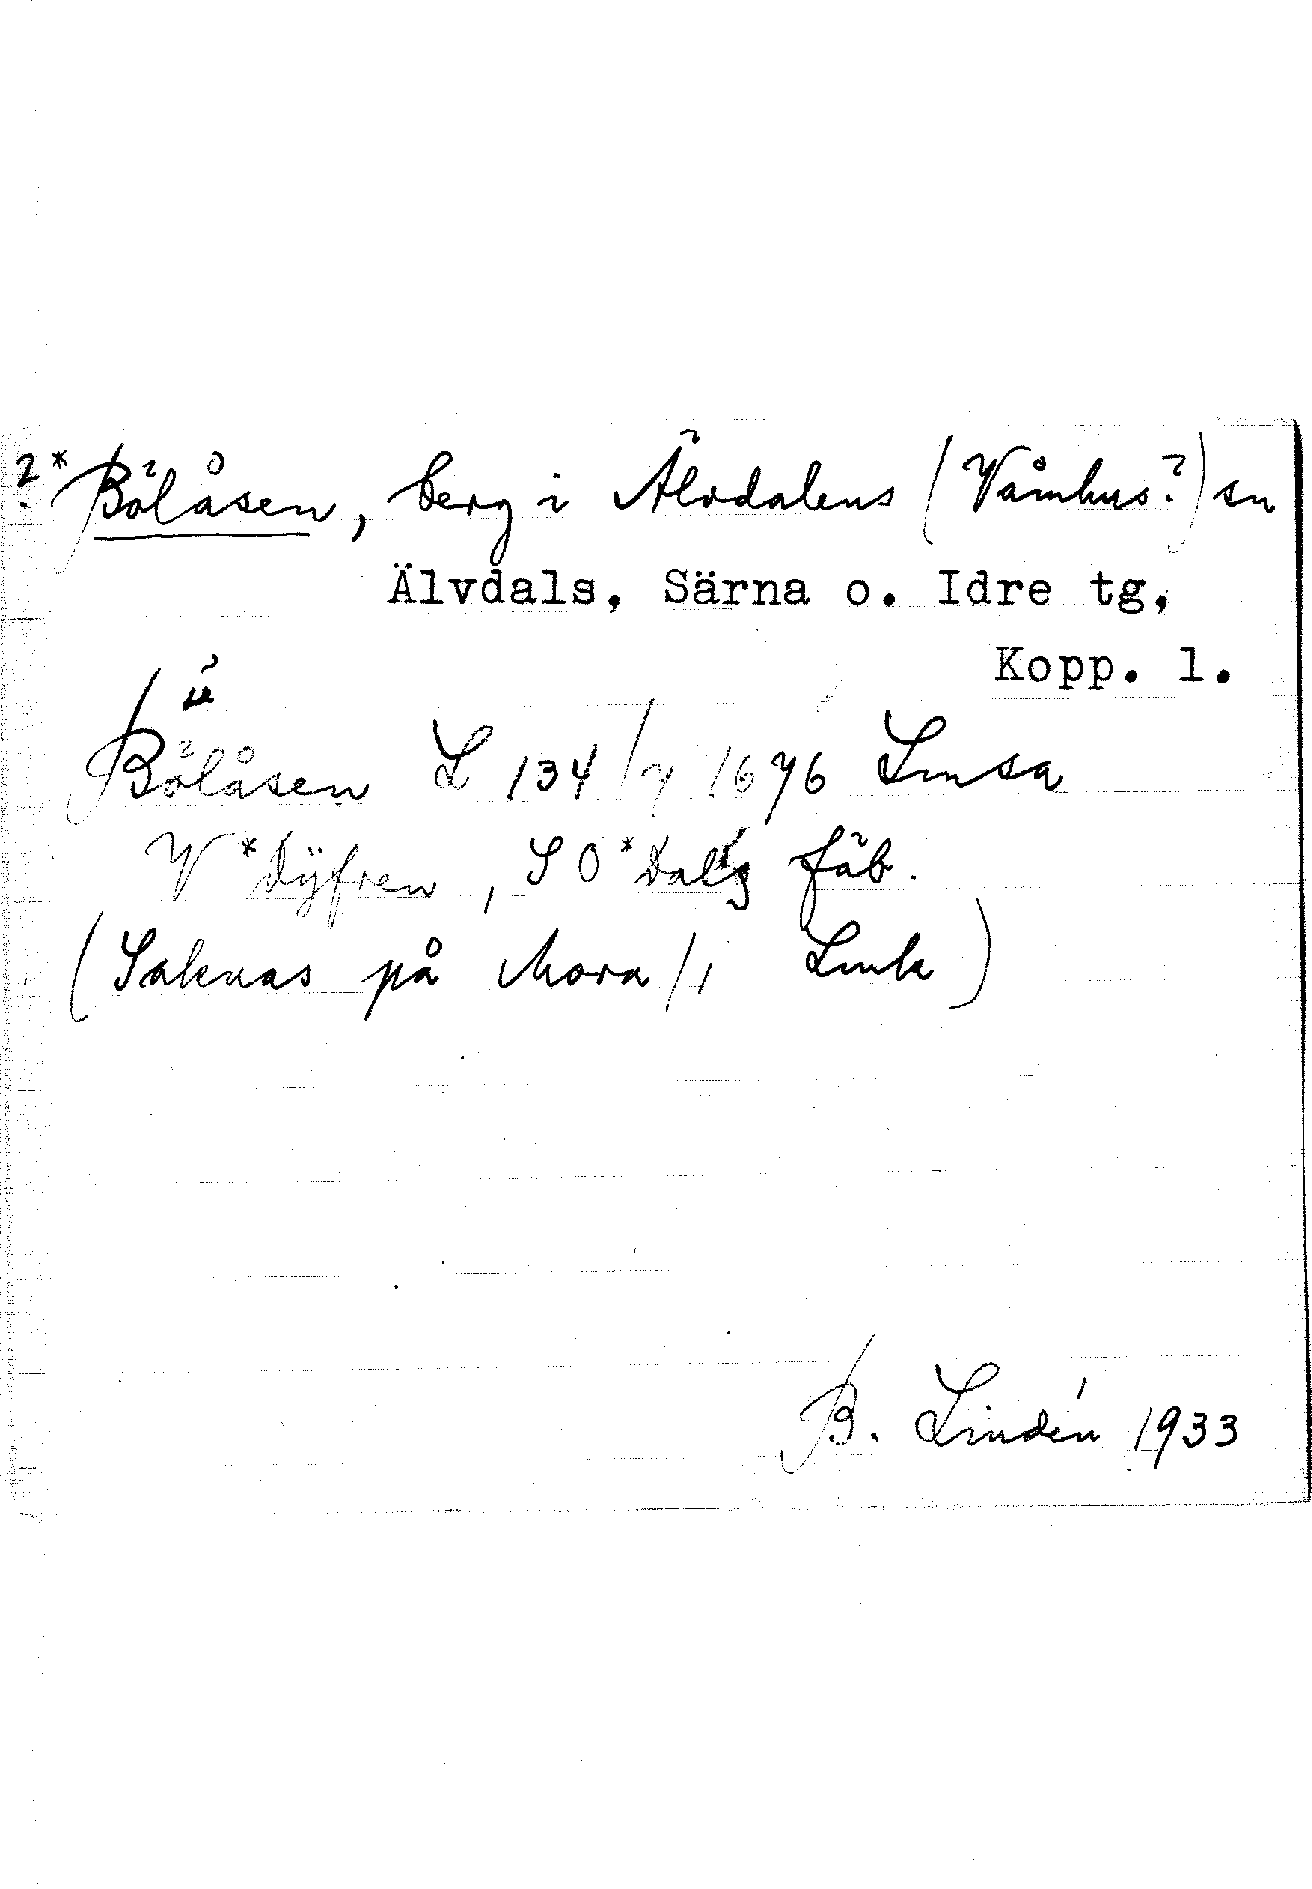 ?*Bölåsen, berg i Älvdalens (Våmhus?) sn
Älvdals, Särna o. Idre tg,
Kopp. l.
ü?
Bölåsen L 134/7 1676 Lmsa
V *Dÿfren, SO *Dal:s fäb.
(Saknas på Mora/1 Lmk)
B. Lindén 1933